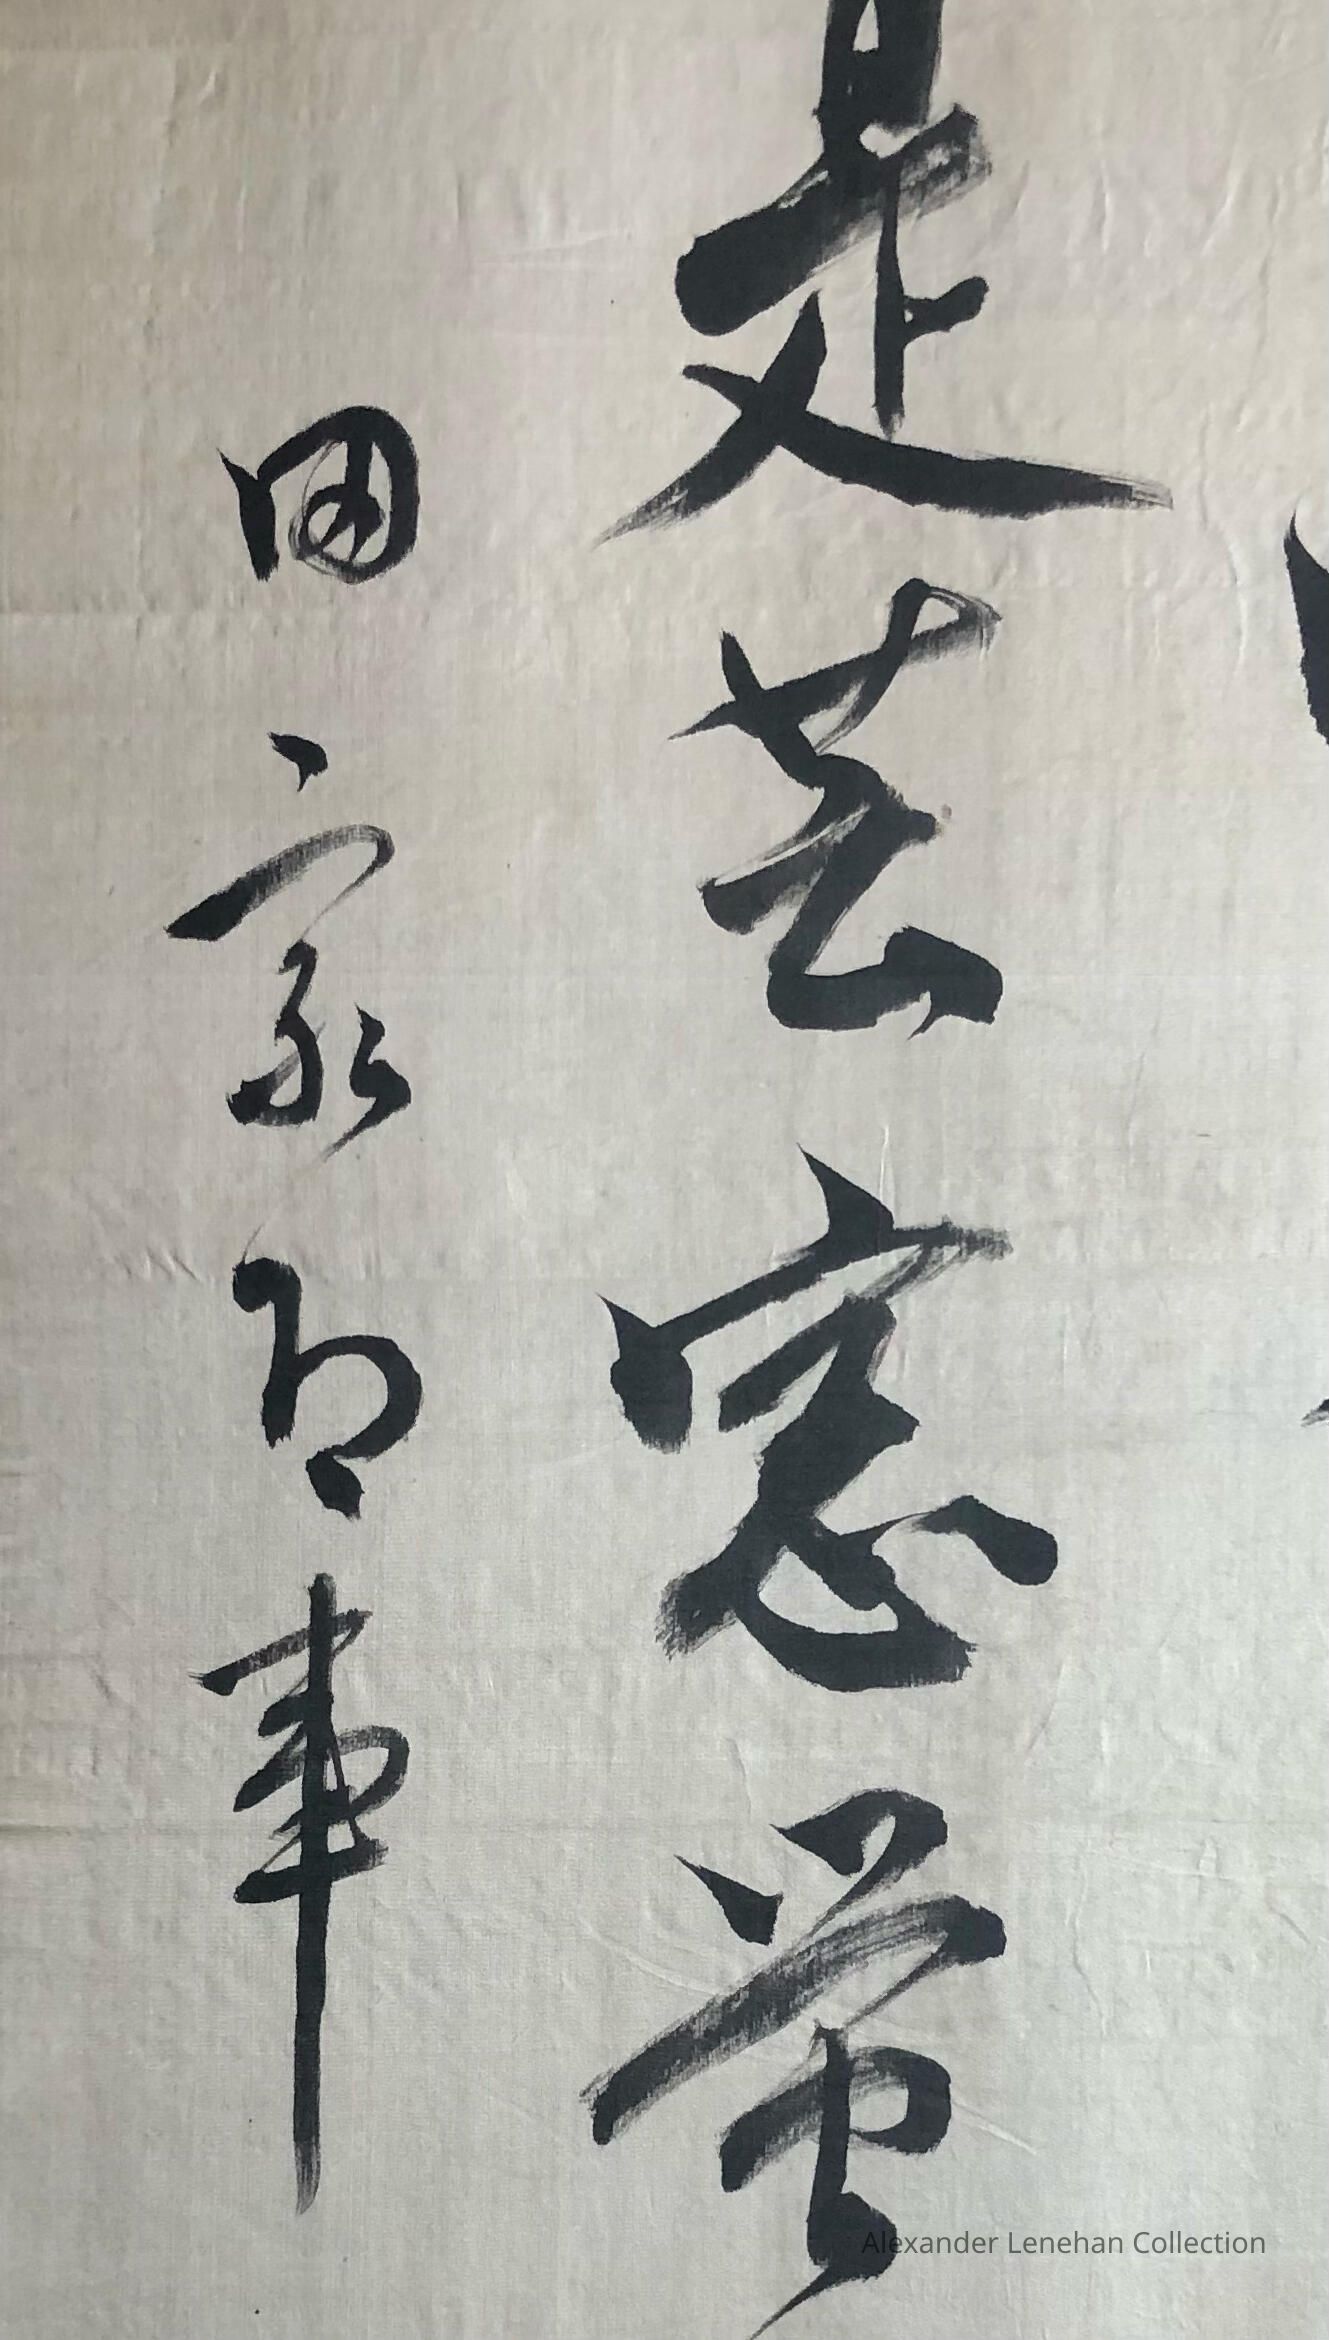 是芸窓蛍
田家即事
Alexander Lenehan Collection